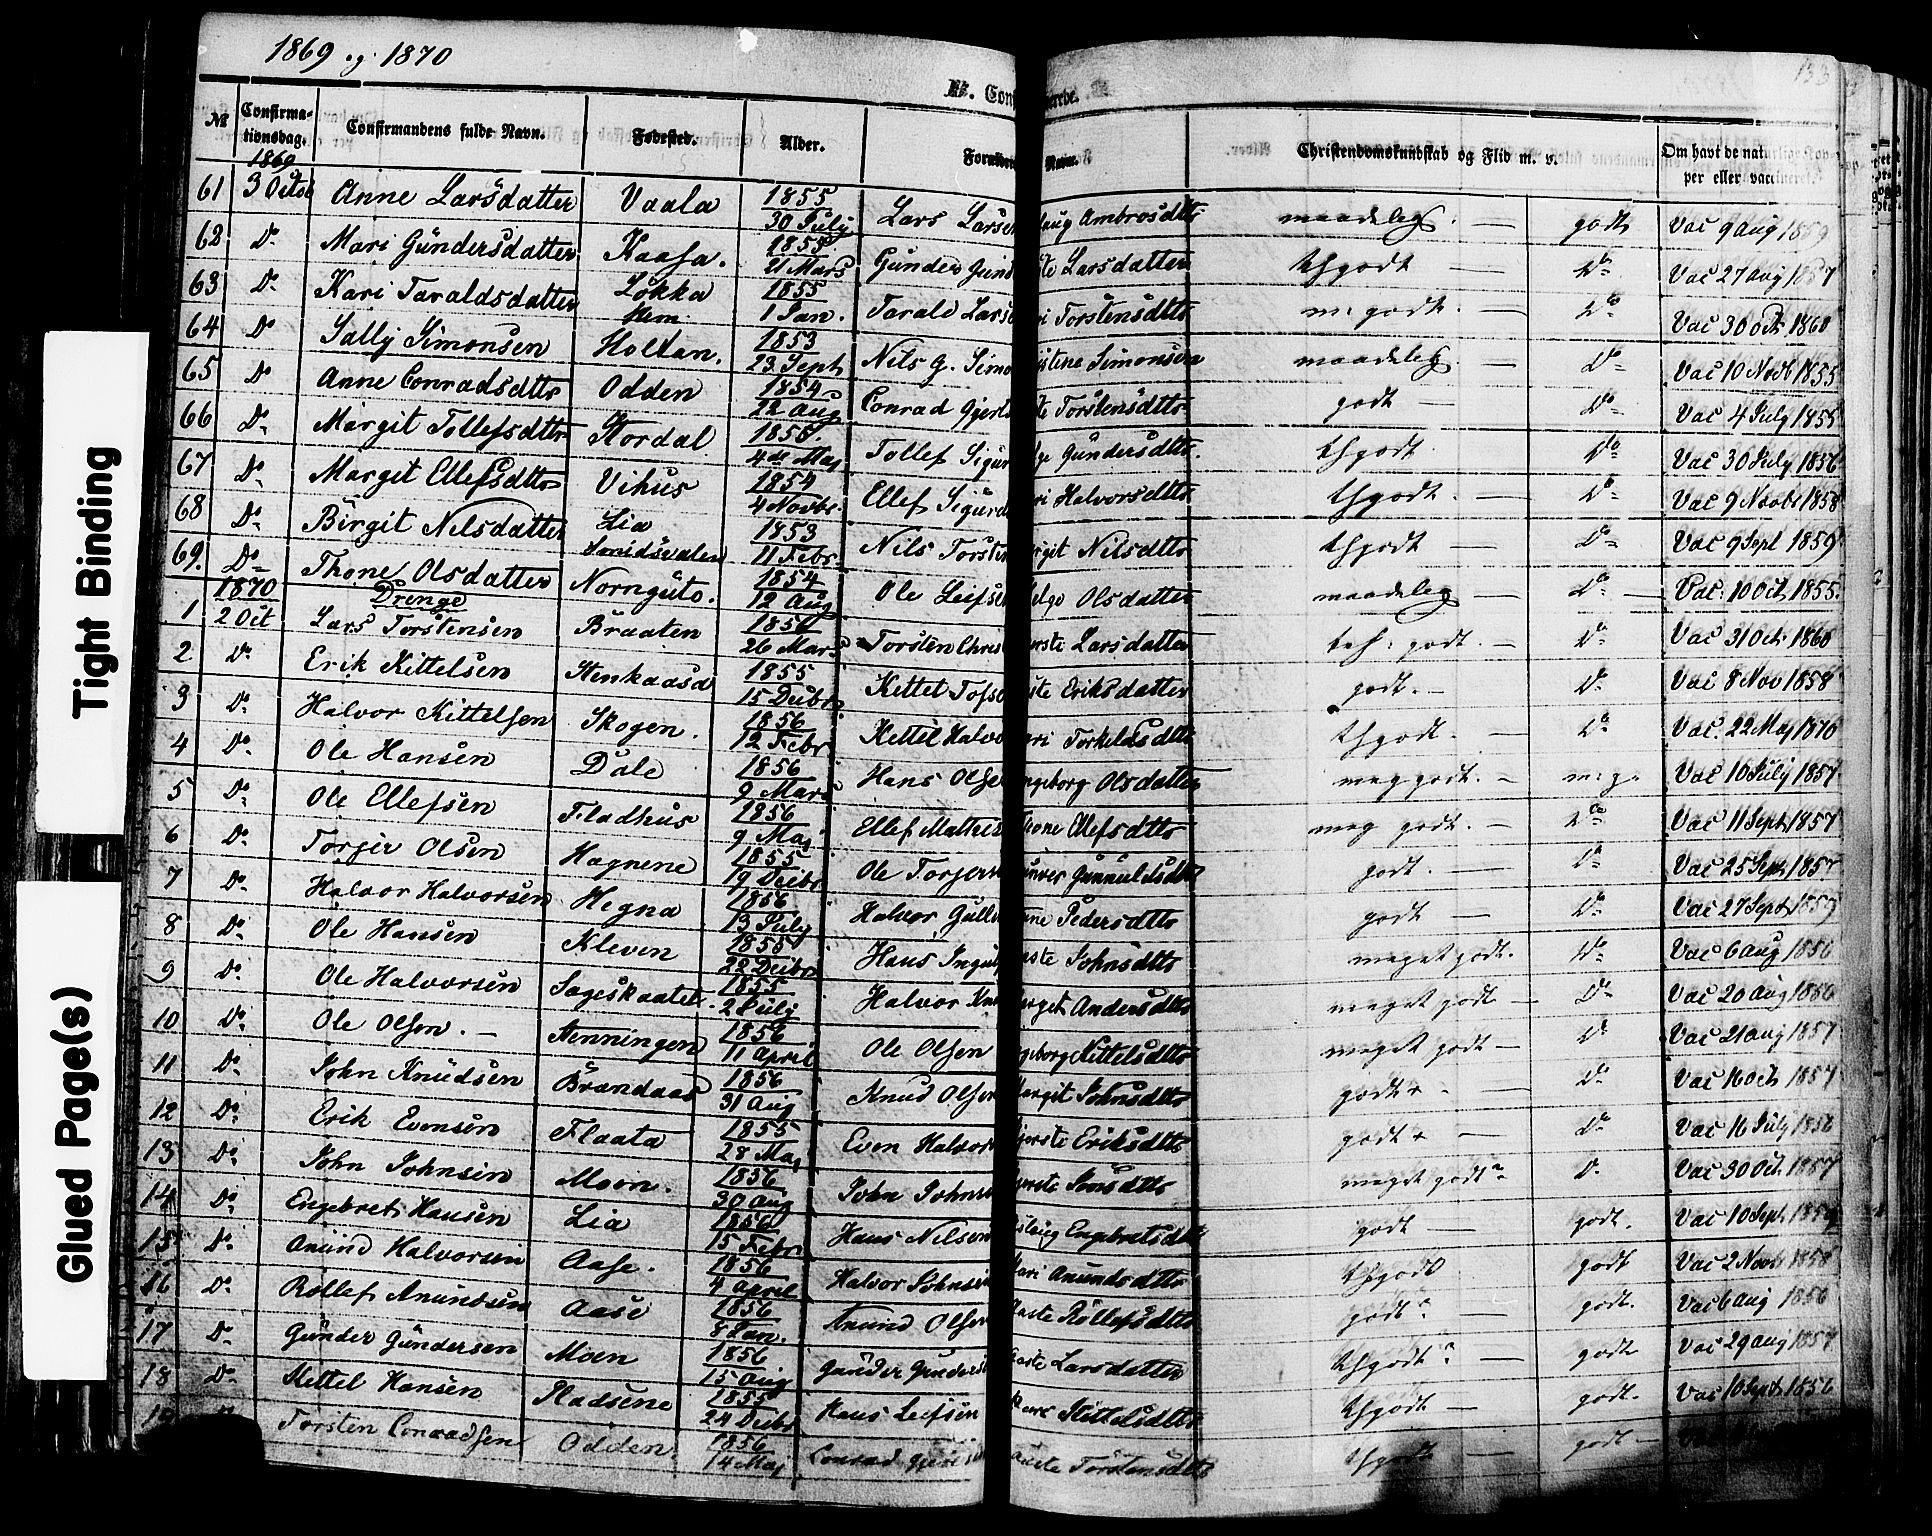 1869 og 1870
133
E. Con erede.
№ Confirma-tionsdag. Confirmandens fulde Navn. Fødested. Alder. Forældre Navn. Christendomskundskab og Flid m. v. Om havt de naturlige Kop-per eller vaccineret.
1869
61 3 Octob Anne Larsdatter Vaala 1855 30 July Lars Larsen aug Ambrosdtto maadeleg. — godt Vac 9 Aug 1859
62 Do Mari Gündersdatter Kaasa. 1855 21 Mars Gunder Gund ste Larsdatter thgodt — Do Vac 27 Aug 1857
63 Do Kari Taraldsdatter Løkka 1855 1 Jan. Tarald Lars ri Torstensdtto m. godt. Do Vac 30 Oct 1860
64 Do Sally Simonsen Hem Holtan. 1853 23 Sept Nils G. Simo istine Simonsen maadeleg. — Do Vac 10 Novb 1855
65 Do Anne Conradsdtto Odden 1854 22 Aug Conrad Gjerts ste Torstensdtto godt — Do Vac 4 July 1855
66 Do Margit Tollefsdtto Stordal 1855. 4de Maj Tollef Sigur lge Gundersdtto. thgodt Do Vac 30 July 1856
67 Do Margit Ellefsdtto Vihus 1854 4 Novbr. Ellef Sigurd ri Halvorsdtto thgodt. — Do Vac 9 Novbr 1858
68 Do Birgit Nilsdatter Lia 1853 11 Febr. Nils Torsten irgit Nilsdtto thgodt — Do Vac 9 Sept 1859
69. Do Thone Olsdatter Norngüto. 1854 12 Aug Ole Leifsen elge Olsdatter maadeleg — Do — Vac. 10 Oct 1855.
1870 Drenge
1 2 Oct Lars Torstensen Braaten 1856 26 Mars Torsten Chris erste Larsdatter godt. — Do Vac 31 Oct 1860
2 Do Erik Kittelsen Stenkaasa 1855 15 Decbr Kittel Tofs ste Eriksdatter godt. — Do Vac 8 Nov 1858
3 Do Halvor Kittelsen Skogen. 1856 12 Febr Kettil Halvo ari Torkelsdtto thgodt. — Do Vac. 22 Maj 1870
4 Do Ole Hansen Dale 1856 9 Mars Hans Olse ngeborg Olsdatter meg godt. — m. g. Vac 16 July 1857
5 Do Ole Ellefsen Fladhus 1856 9 Maj Ellef Mathis Thone Ellefsdtto meg godt. — Do Vac 11 Sept 1857
6 Do Torjer Olsen Hagnene 1855 19 Decbr Ole Torjers unver Gunnulsdtto godt. — Do Vac 25 Sept 1857
7 Do Halvor Halvorsen Hegna 1856 13 July Halvor Gullv ne Pedersdtto godt — Do Vac 27 Sept 1859
8 Do Ole Hansen Kleven 1855 22 Decbr Hans Ingul aste Johnsdtto meget godt. Do Vac 6 Aug 1856
9 Do Ole Halvorsen Sageskaatet. 1855 2 July Halvor Knu arget Andersdtto meget godt — Do Vac 20 Aug 1856
10 Do Ole Olsen. — Henningen 1856 11 April Ole Olsen ngeborg Kittelsdtto meget godt — Do Vac 21 Aug 1857
11 Do John Knüdsen Brændaas 1856 31 Aug Knud Olsen Margit Johnsdtto godt - Do Vac 16 Oct 1857
12 Do Erik Evensen Flaata 1855 28 Maj Even Halvor Gjerste Eriksdtto godt — Do Vac 16 July 1856
13 Do John Johnsen Moen. 1856 30 Aug John Johns gerste Jonsdtto meget godt Do Vac 30 Oct 1857
14 Do Engebret Hansen Lia 1856 15 Febr Hans Nilsen slaug Engebretsdtto godt — godt. Vac 10 Sept 1859
15 Do Anund Halvorsen Aase. 1856 4 April Halvor Johnsen Kari Anundsdtto thgodt godt Vac 2 Novb 1858
16 Do Rollef Anundsen Aase 1856 8 Jan. Anund Olsen Aaste Rollefsdtto godt — godt. Vac 6 Aug 1856
17 Do Günder Gündersen Moen 1856 15 Aug Gunder Gunders aste Larsdatter thgodt — godt Vac 29 Aug 1857
18 Do Kittel Hansen Pladsene 1855 24 Decbr Hans Leifsen Kittelsdtto thgodt — godt. Vac 10 Sept 1856
19 Torsten Conradsen Odden. 1856 14 Maj Conrad Aaste Torstensdtto thgodt — godt — Vac
Tight Binding
Glued Page(s)